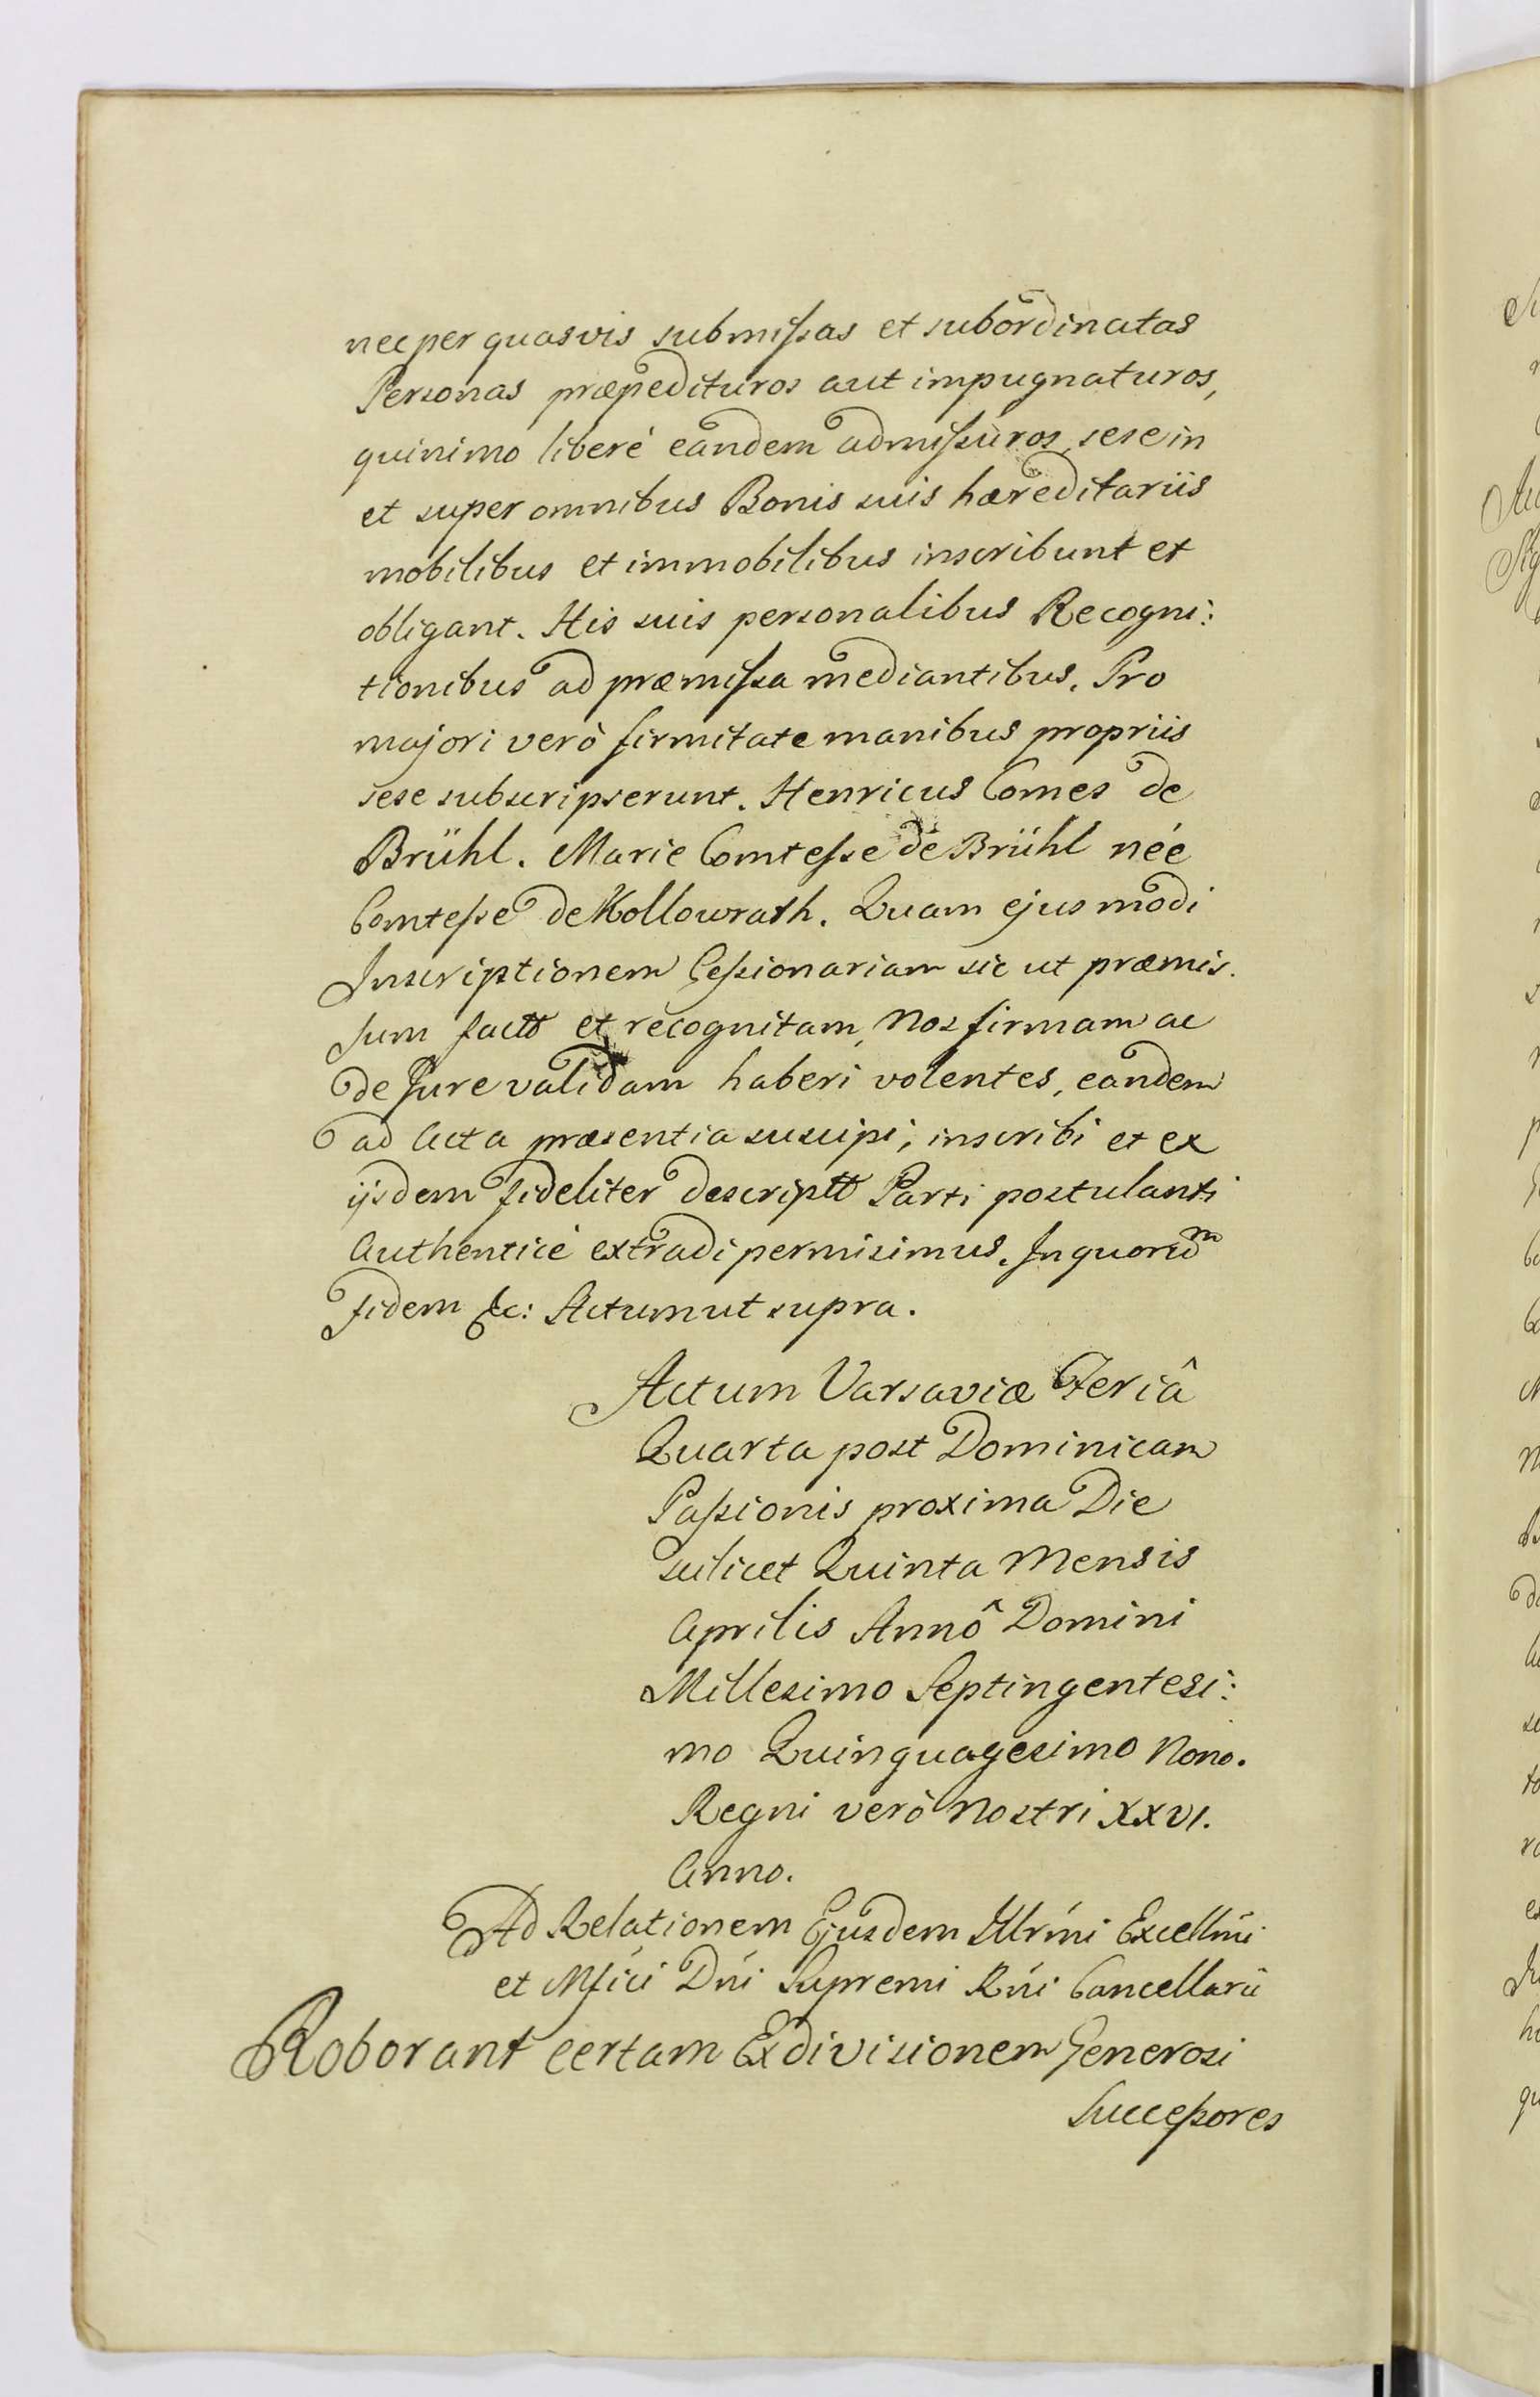 nec per quasvis submissas et subordinatas
Personas præpedituros aut impugnaturos,
quinimo liberè eandem admissuros, sese in
et super omnibus Bonis suis hæreditariis
mobilibus et immobilibus inscribunt et
obligant. His suis personalibus Recogni:
tionibus ad præmissa mediantibus. Pro
majori verò firmitate manibus propriis
sese subscripserunt. Henricus Comes de
Brühl. Marie Comtesse de Brühl née
Comtesse de Kollowrath. Quam ejusmodi
Inscriptionem Cessionariam sic ut præmis.
sum factt et recognitam, Nos firmam ac
de Jure validam haberi volentes, eandem
ad Acta præsentia suscipi, inscribi et ex
ijsdem fideliter descriptt Parti postulanti
Authenticè extradi permisimus. In quorũm
fidem &c: Actum ut supra.
Actum Varsaviæ Feriâ
Quarta post Dominicam
Passionis proxima Die
scilicet Quinta Mensis
Aprilis Annô Domini
Millesimo Septingentesi:
mo Quinquagesimo Nono.
Regni verò Nostri XXVI.
Anno.
Ad Relationem Ejusdem Illrmi Excellmi
et Mfici Dni Supremi Rni Cancellarii
Roborant certam Exdivisionem Generosi
Successores